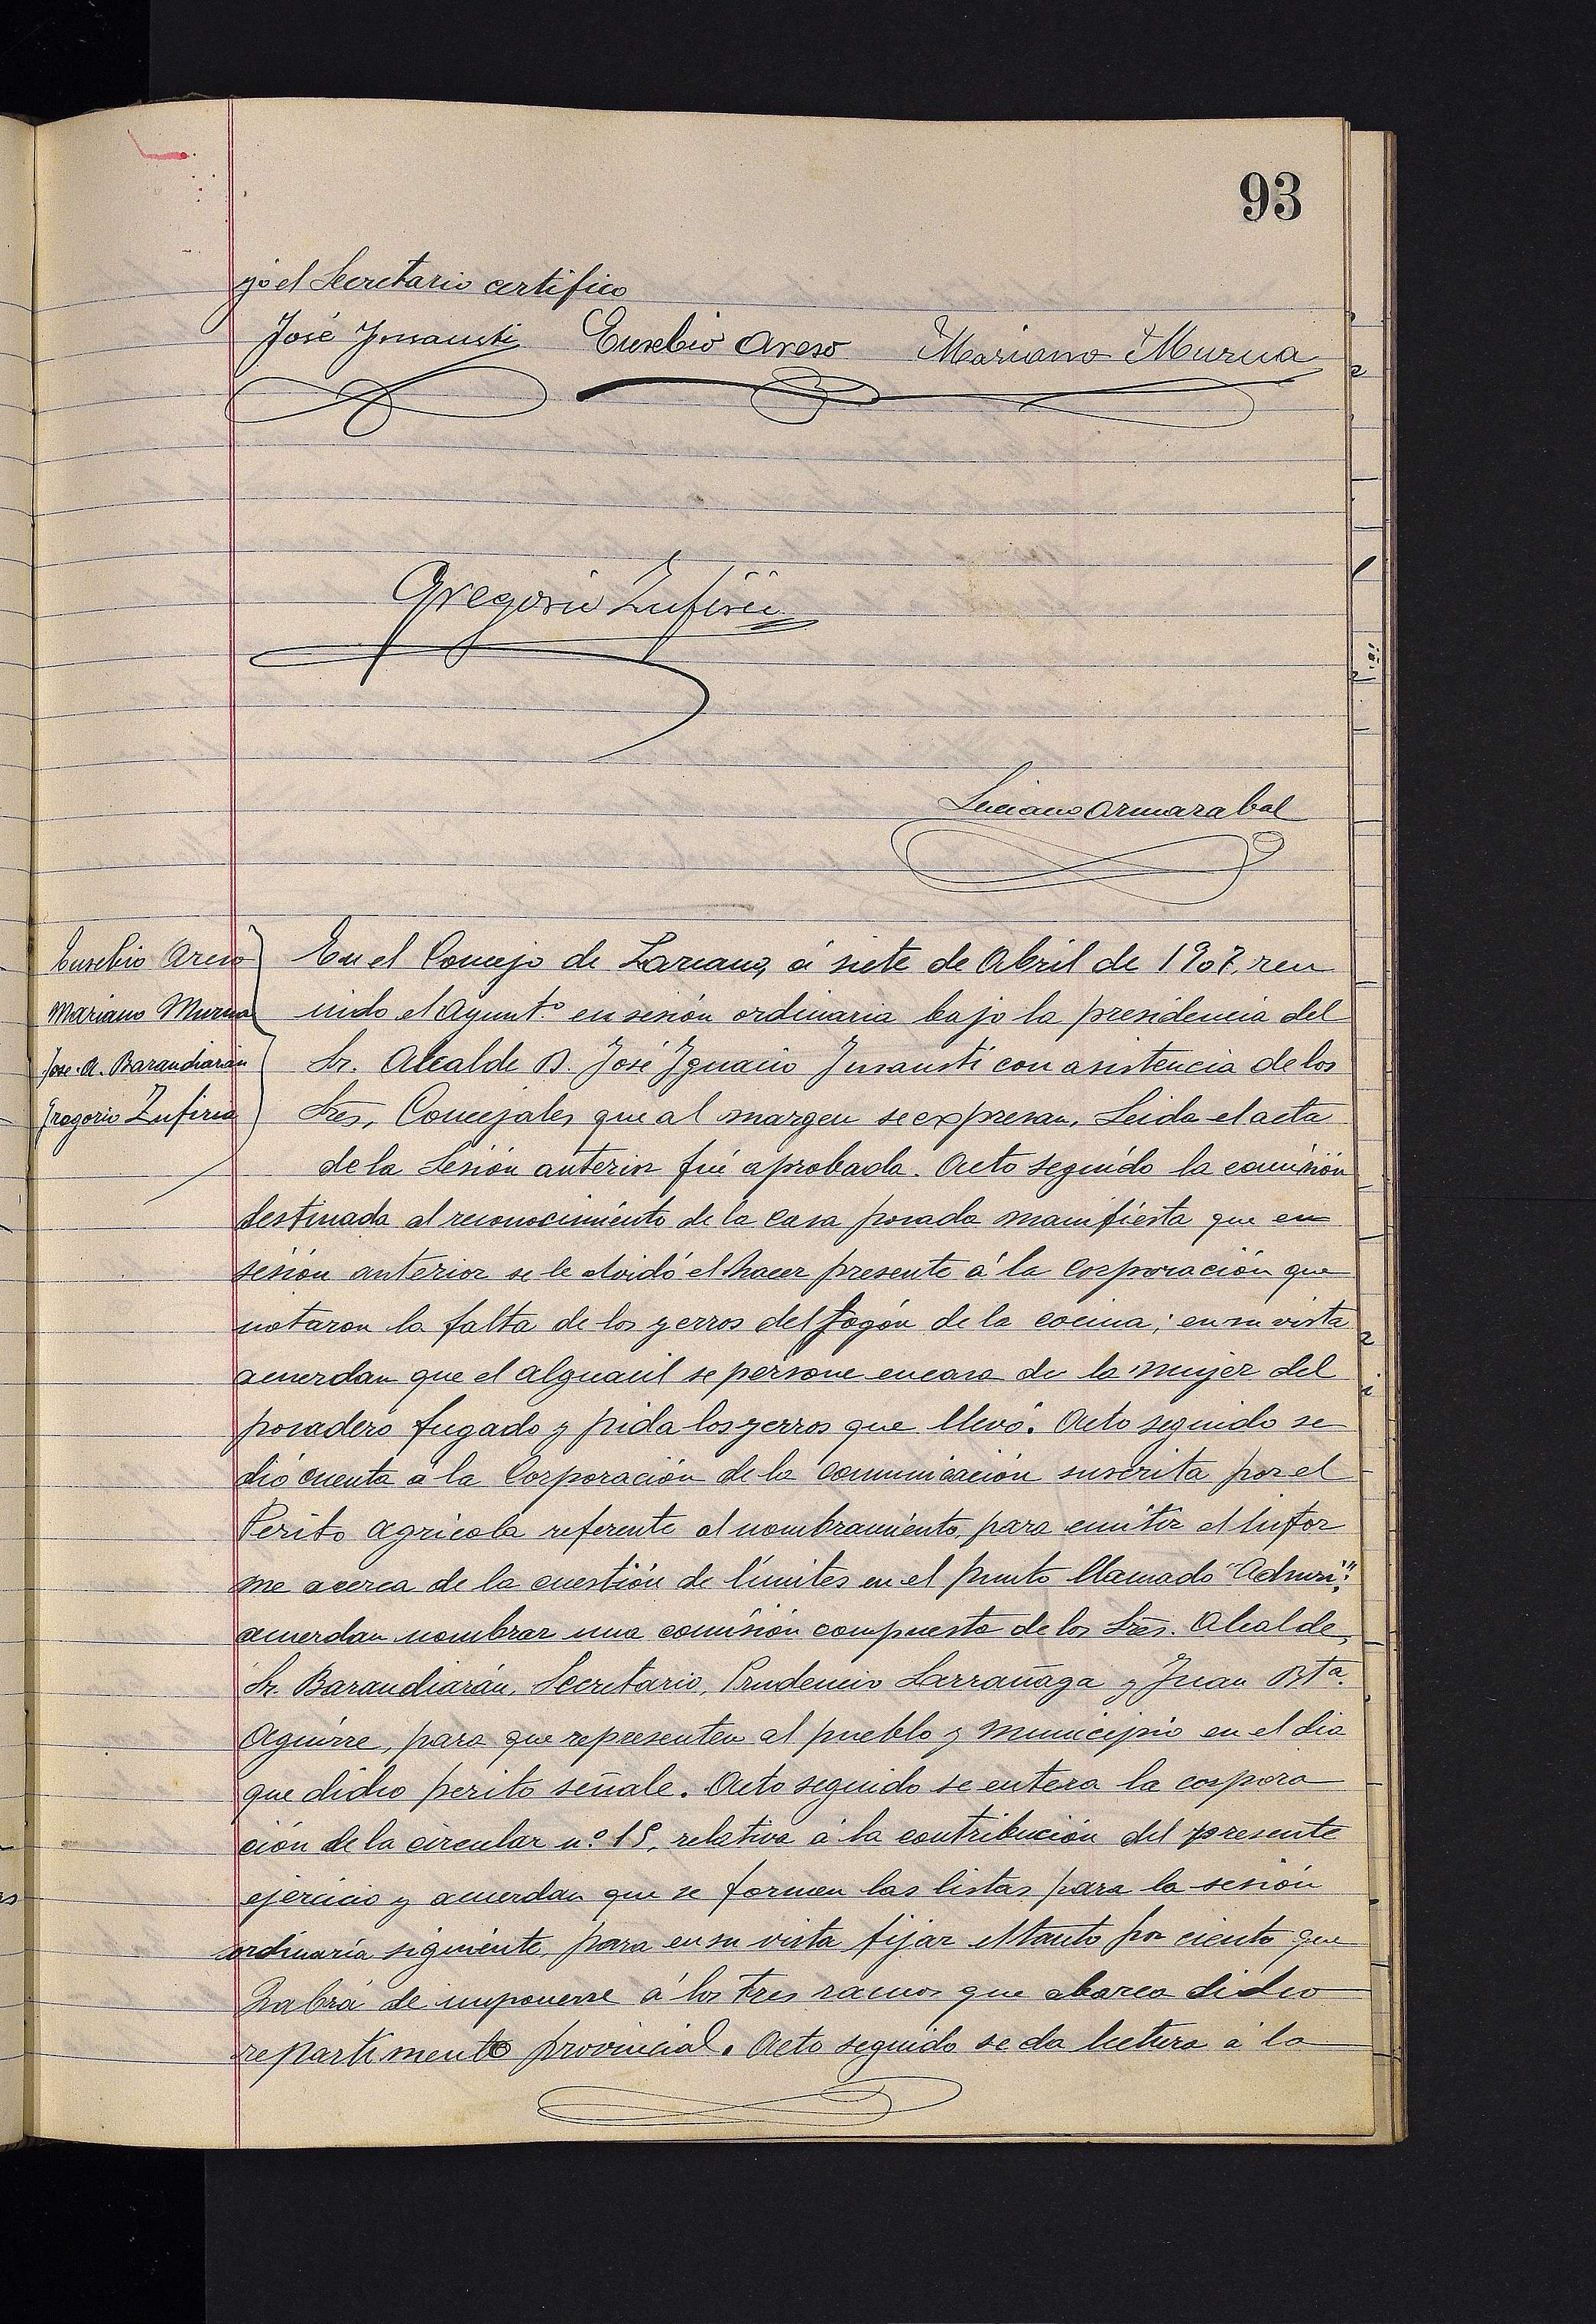 93
yó el Secretario certifico
José Ynsausti Eusebio Areso Mariano Murua
Gregorio Zufiria
Luciano Ormazabal
Eusebio Areso
Mariano Murua
Jose A. Barandiarán
Gregorio Zufiria
En el Concejo de Lazcano, á siete de Abril de 1907, reu
nido el Ayunt.º en sesión ordinaria bajo la presidencia del
Sr. Alcalde D. José Ygnacio Ynsausti con asistencia de los
Sres. Concejales que al margen se expresan. Leida el acta
de la Sesión anterior fué aprobada. Acto seguido la comisión
destinada al reconocimiento de la casa posada manifiesta que en
sesión anterior se le olvidó el hacer presente á la Corporación que
notaron la falta de los yerros del fogón de la cocina; en su vista
acuerdan que el alguacil se persone en casa de la mujer del
posadero fugado y pida los yerros que llevó. Acto seguido se
dió cuenta á la Corporación de la comunicación suscrita por el
Perito agrícola referente al nombramiento, para emitir el infor
me acerca de la cuestión de límites en el punto llamado
acuerdan nombrar una comisión compuesta de los Sres. Alcalde,
Sr. Barandiarán, Secretario, Prudencio Larrañaga y Juan Bta.
Aguirre, para que representen al pueblo y municipio en el dia
que dicho perito señale. Acto seguido se entera la corpora
ción de la circular n.º relativa á la contribución del presente
ejercicio y acuerdan que se formen las listas para la sesión
ordinaria siguiente, para en su vista fijar el tanto por ciento que
habrá de imponerse á los tres ramos que abarca dicho
repartimento provincial. Acto seguido se da lectura á la